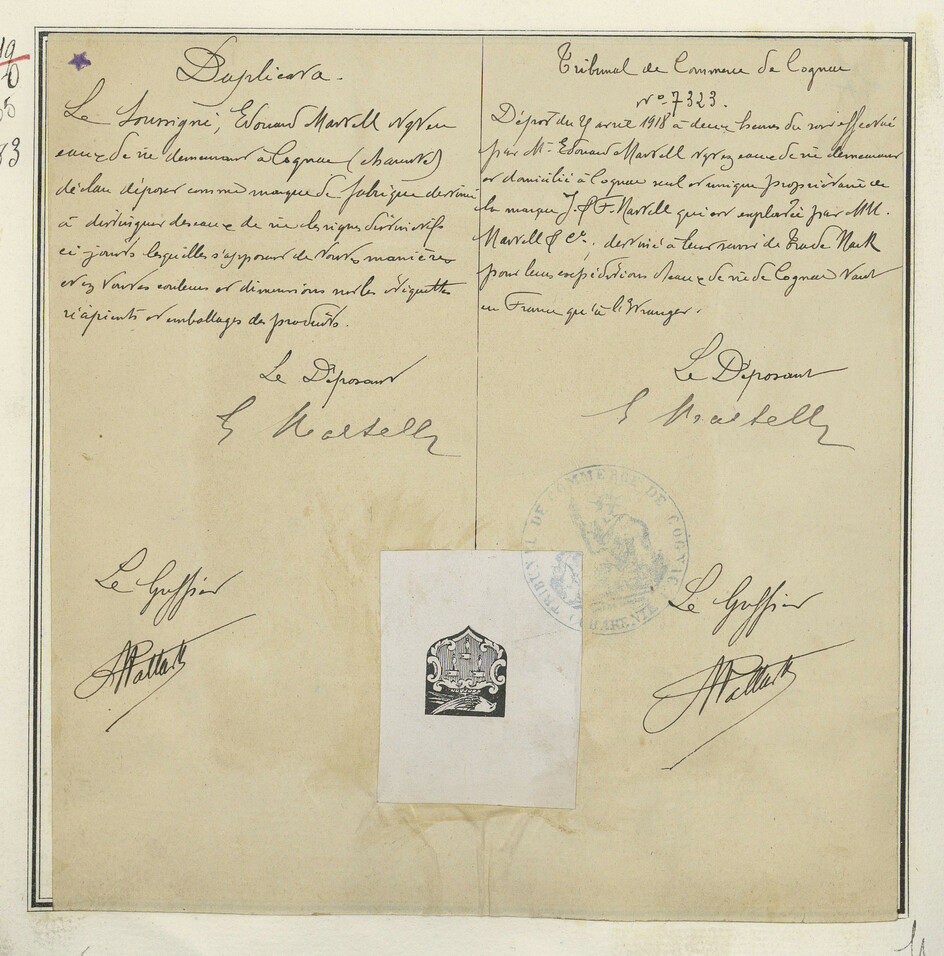 Duplicata.
Le Soussigné, Edouard Martell Ngt en
eaux de vie demeurant à Cognac (Charente)
déclare déposer comme marque de fabrique destinée
à distinguer des eaux de vie les signes distinctifs
ci joints lesquelles s'apposent de toutes manières
et en toutes couleurs et dimensions sur les étiquettes
récipients et emballages des produits.
Le Déposant
E Martell
Le Greffier
Tribunal de Commerce de Cognac
No 7323.
Dépôt du avril 1918 à deux heures du soir effectué
par Mr Edouard Martell Ngt en eaux de vie demeurant
et domicilié à Cognac seul et unique propriétaire de
la marque J. & F. Martell qui est exploitée par MM.
Martell & Ce; destiné à leur servir de Trade Mark
pour leurs expéditions d'eaux de vie de Cognac tant
en France qu'à l'Etranger.
Le Déposant
E Martell
TRIBUNAL DE COMMERCE DE COGNAC
CHARENTE
Le Greffier